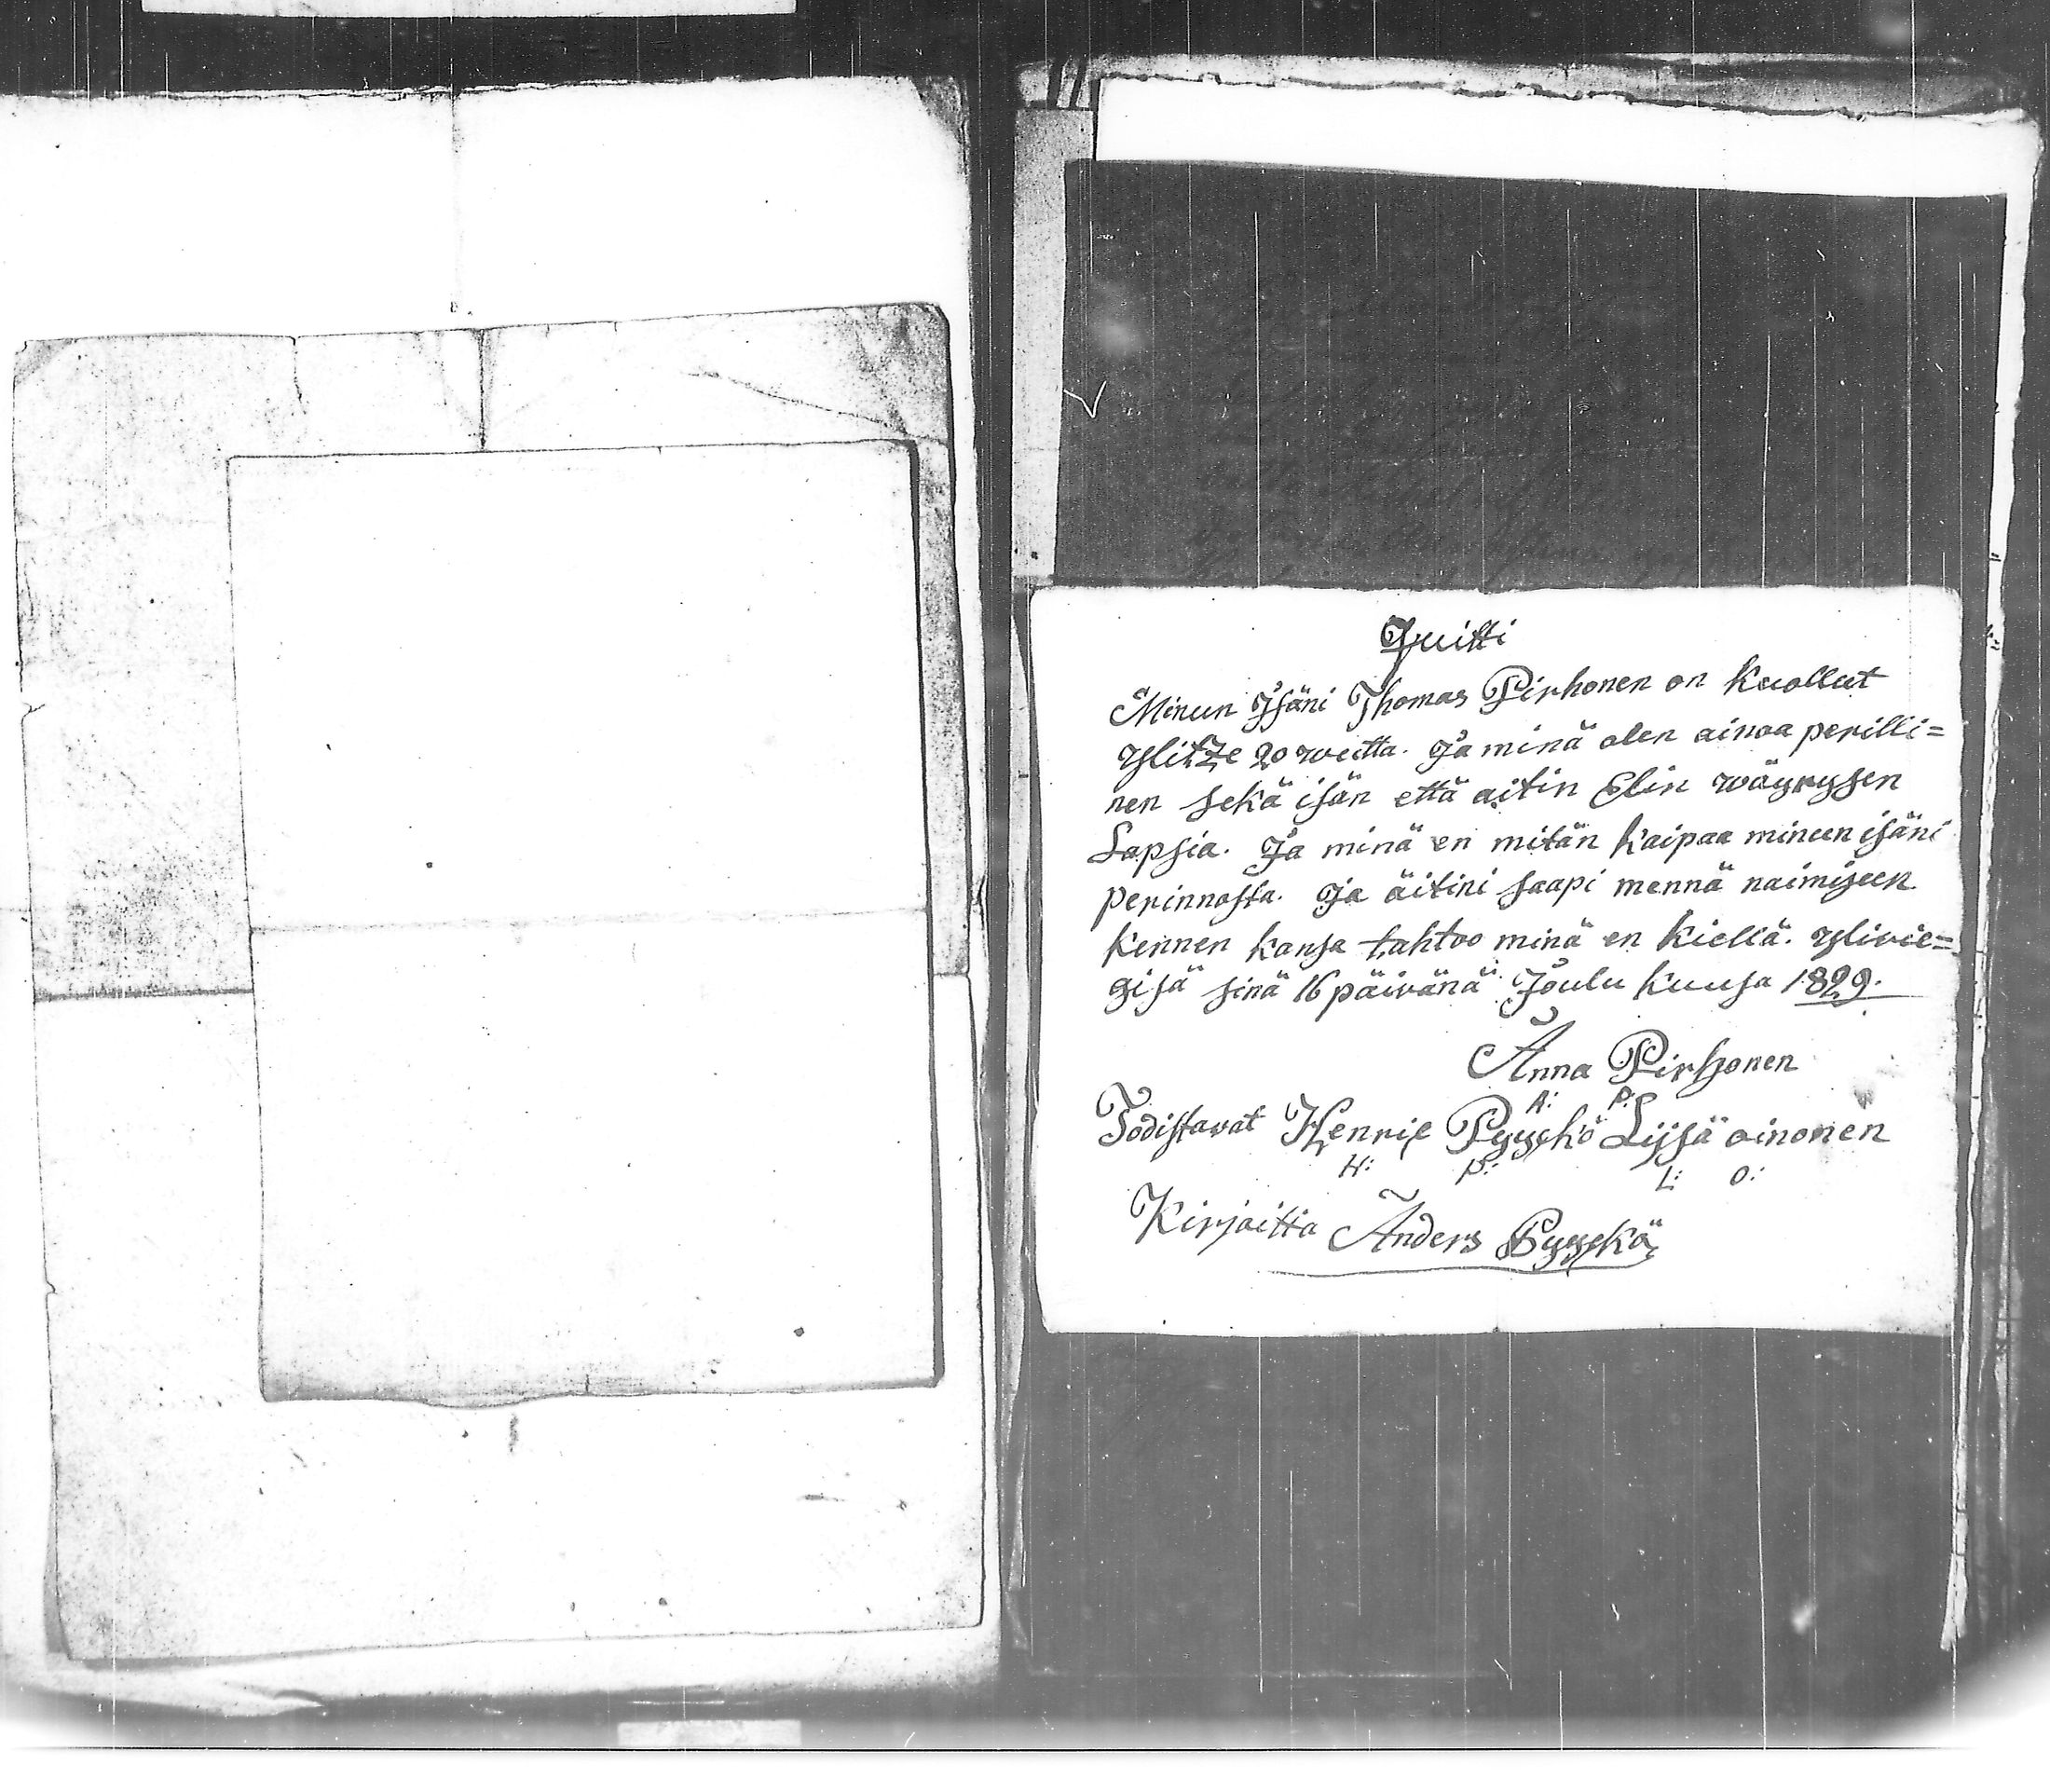 Quitti
Minun Isäni Thomas Pirhonen on kuollut
ylitze 20 wuitta. Ja minä olen ainoa perilli=
nen sekä isän että aitin Elin wäyrysen
Lapsia. Ja minä en mitän kaipaa minun isäni
perinnosta. ja äitini saapi mennä naimiseen
kennen kansa tahtoo minä en kiellä. ylivie=
gisä sinä 16 päivänä Joulu kuusa 1829.
Anna Pirhonen
A: P:
Todistavat Henric Pyyckö Lijsä oinonen
H: P: L: O:
Kirjoitta Anders Pyyckö